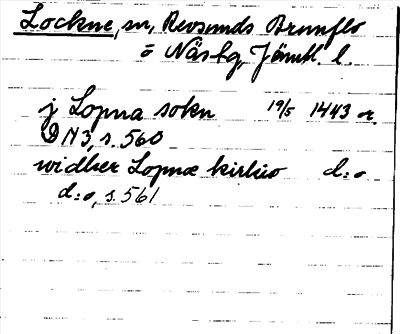 Lockne, sn, Revsunds Brunflo
o Näs tg, Jämtl. l.
j Lopna sokn 19/5 1443 or.
DN 3, s. 560
widher Lopnæ kirkio d:o
d:o, s. 561